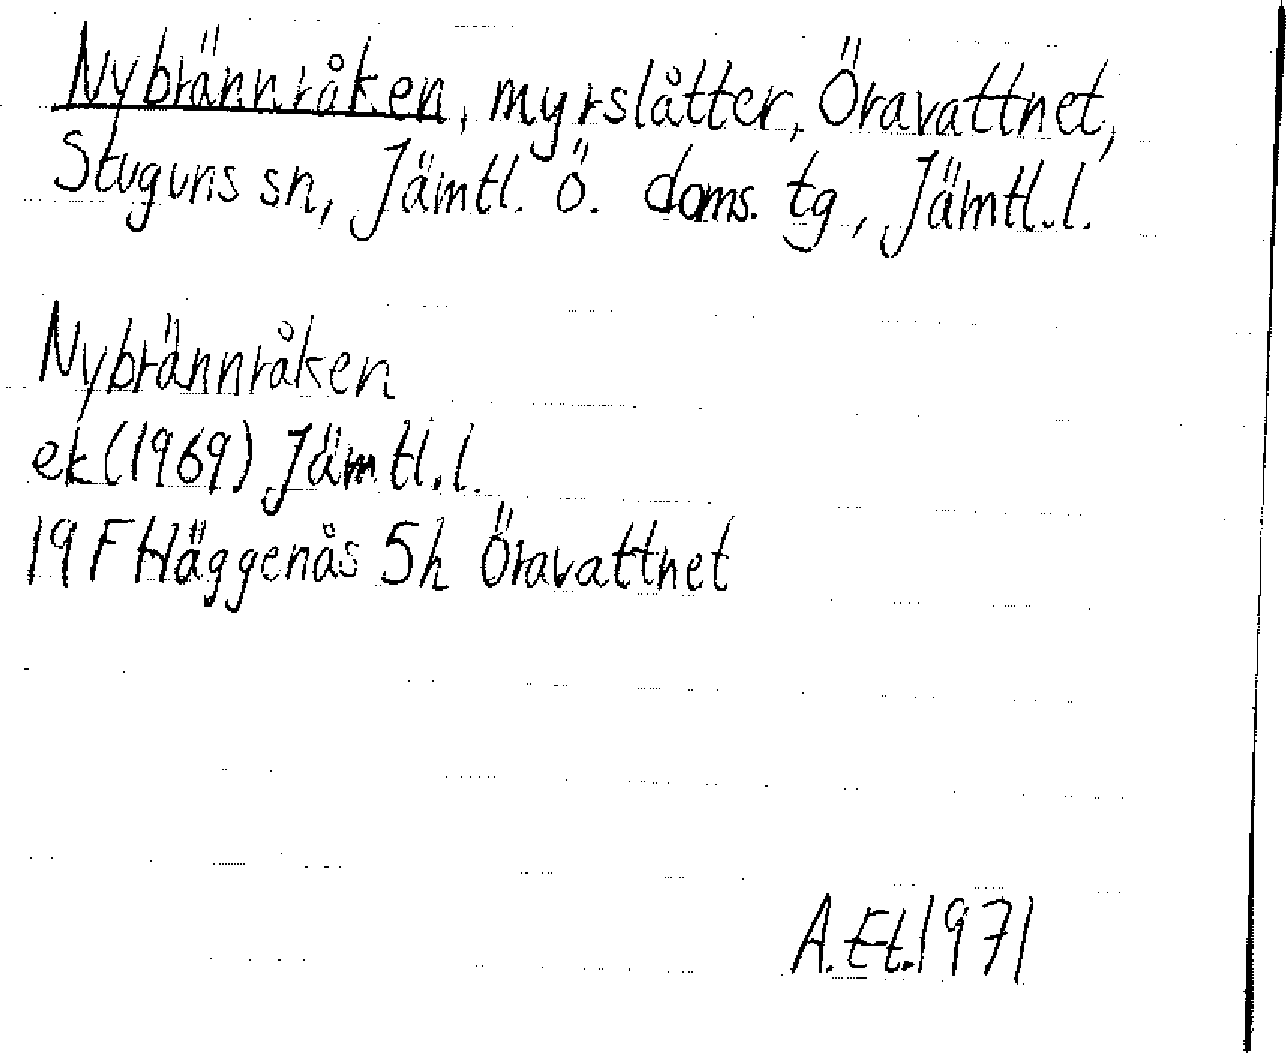 Nybrännråken, myrslåtter, Öravattnet,
Stuguns sn, Jämtl. Ö. doms. tg, Jämtl.l.
Nybrännråken
ek (1969) Jämtl.l.
19F Häggenås 5h Öravattnet
A.Et.1971